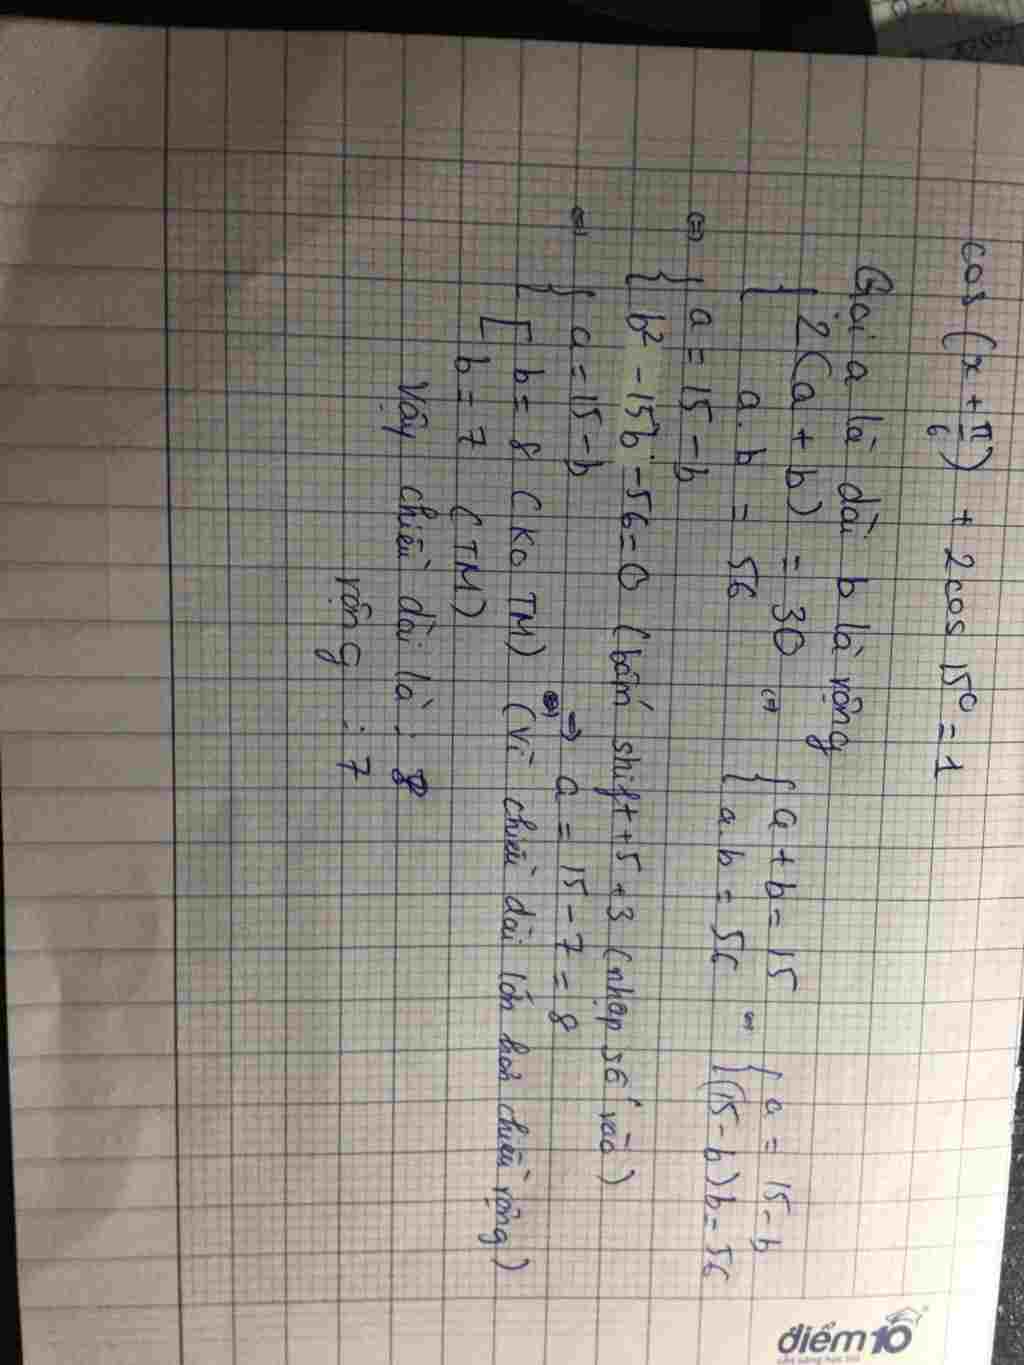 cos (x + π/6) + 2cos 15° = 1
Gọi a là dài b là rộng
{ 2(a + b) = 30 (=) { a + b = 15 (=) { a = 15 - b
{ a.b = 56 { a.b = 56 { (15 - b)b = 56
(=) { a = 15 - b
{ b² - 15b - 56 = 0 (bấm shift + 5 + 3 (nhập 56 vào)
(=) { a = 15 - b => a = 15 - 7 = 8
{ [ b = 8 (Ko TM) (Vì chiều dài lớn hơn chiều rộng)
b = 7 (TM)
Vậy chiều dài là : 8
rộng : 7
điểm10